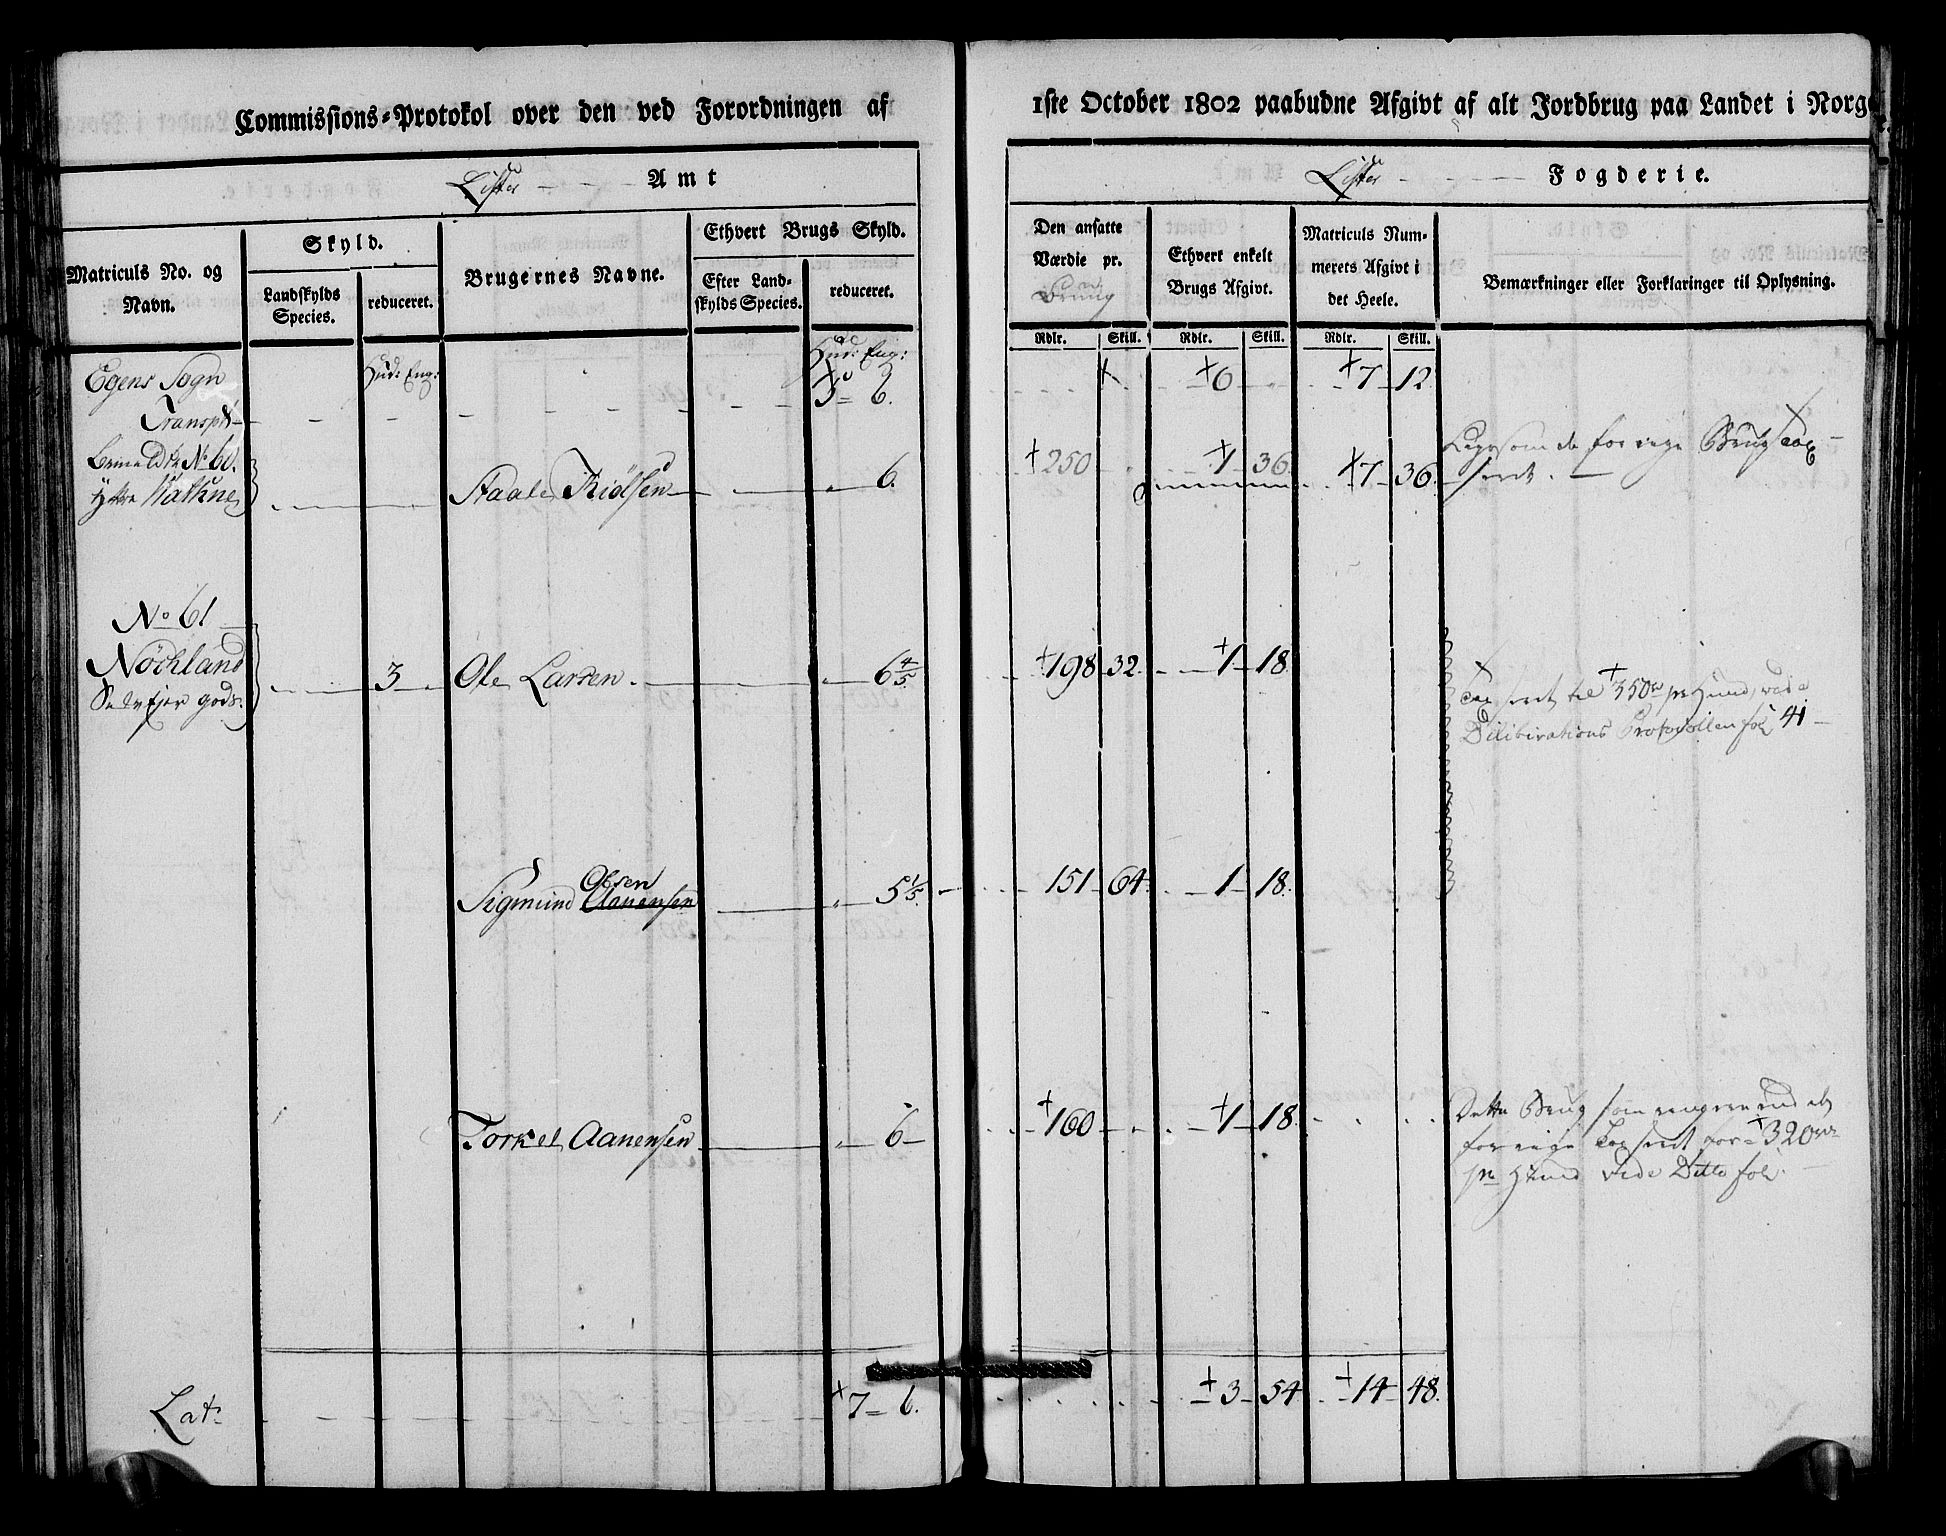 Commissions-Protokol over den ved Forordningen af
1ste October 1802 paabudne Afgivt af alt Jordbrug paa Landet i Norge
Lister Amt
Lister Fogderie.
Matriculs No. og Navn.
Skyld.
Landskylds Species.
reduceret.
Brugernes Navne.
Ethvert Brugs Skyld.
Efter Landskylds Species.
reduceret.
Den ansatte Værdie pr. Brug
Ethvert enkelt Brugs Afgivt.
Matriculs Nummerets Afgivt i det Heele.
Bemærkninger eller Forklaringer til Oplysning.
Rdlr. Skill. Rdlr. Skill. Rdlr. Skill.
Egens Sogn Hud: Eng: Hud: Eng:
Transpt 5 6. 6 7 12
No 60.
Staale 6. 250 1 36. 7 36. Ligesom de forrige Brug
No 61
Nöchland 3 Ole Larsen 6 4/5. 198 32. 1 18.
Selvejer gods. til 350 pr Hund, vide
Dilibirations Protocollen fol 41
Olsen
Sigmund Aanensen 5 1/5. 151 64. 1 18.
Torkel Aanensen 6 160 1 18. Dette Brug som
forrige for 320
pr Hund vide Ditto fol
Lats 7 6. 3 54 14 48.